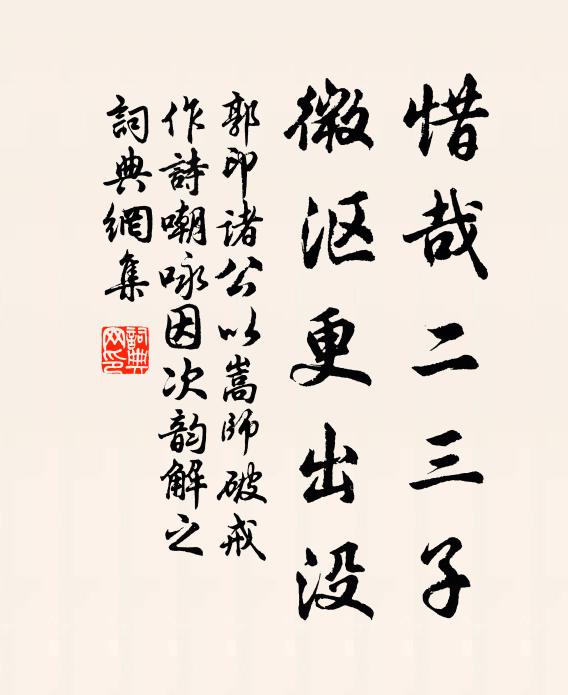 惜哉二三子
微沤更出没
郭印诸公以嵩师破戒
作詩嘲咏因次韵解之
詞典網集
詞典网印